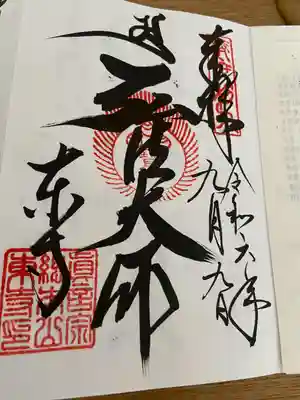 奉拝
令和六年
九月九日
弘法大師
東寺
眞言宗
總本山
東寺印